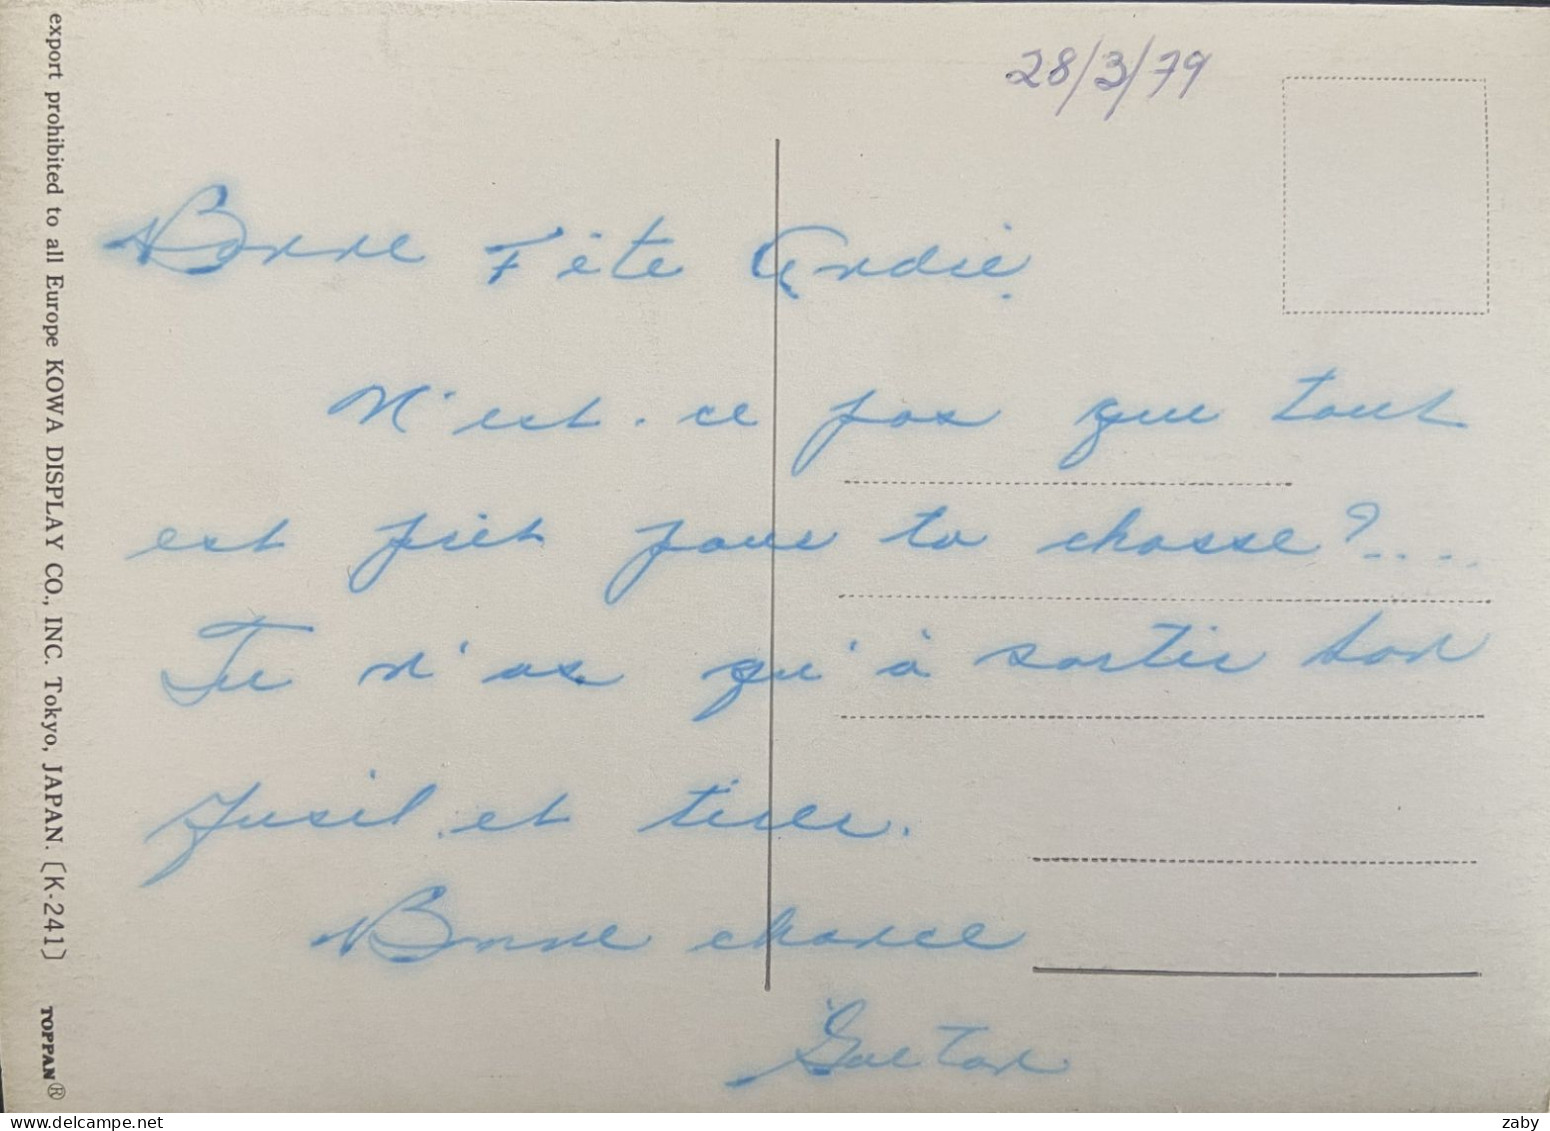 28/3/79
Bonne Fête André.
N'est-ce pas que tout
est prêt pour ta chasse?....
Tu n'as qu'à sortir ton
fusil et tirer.
Bonne chance
Gaetan
export prohibited to all Europe KOWA DISPLAY CO., INC. Tokyo, JAPAN. (K-241) TOPPAN®
zaby